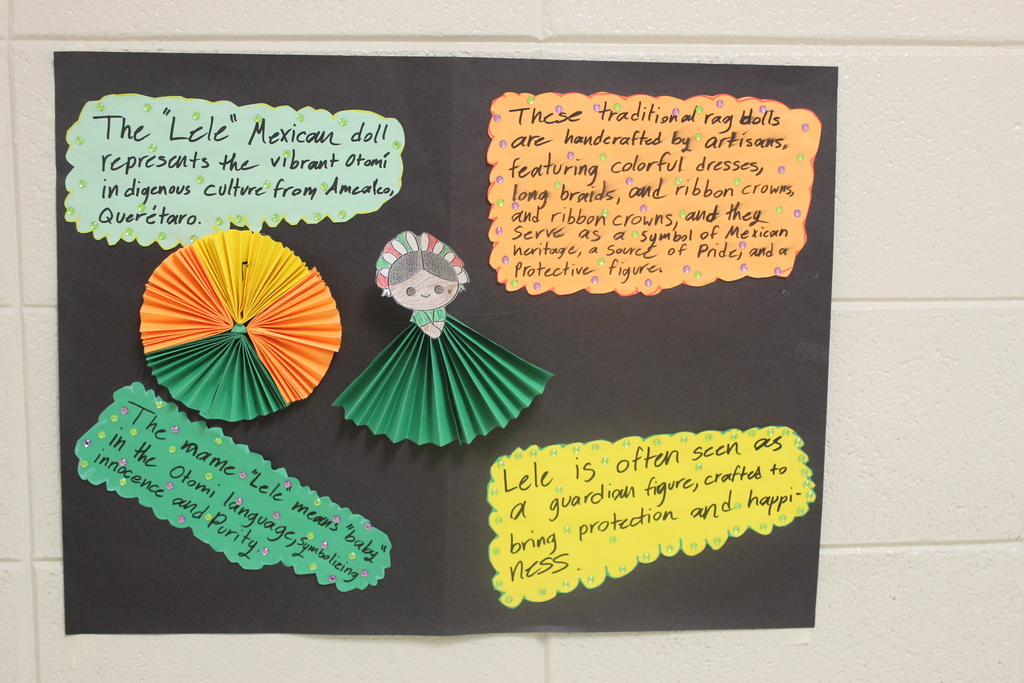 The "Lele" Mexican doll
represents the vibrant Otomí
indigenous culture from Amealco,
Querétaro.
These traditional rag dolls
are handcrafted by artisans,
featuring colorful dresses,
long braids, and ribbon crowns,
and ribbon crowns, and they
serve as a symbol of Mexican
heritage, a source of Pride, and a
Protective figure.
The mame "Lele" means "baby"
in the Otomi language, symbolizing
innocence and Purity.
Lele is often seen as
a guardian figure, crafted to
bring protection and happi-
ness.